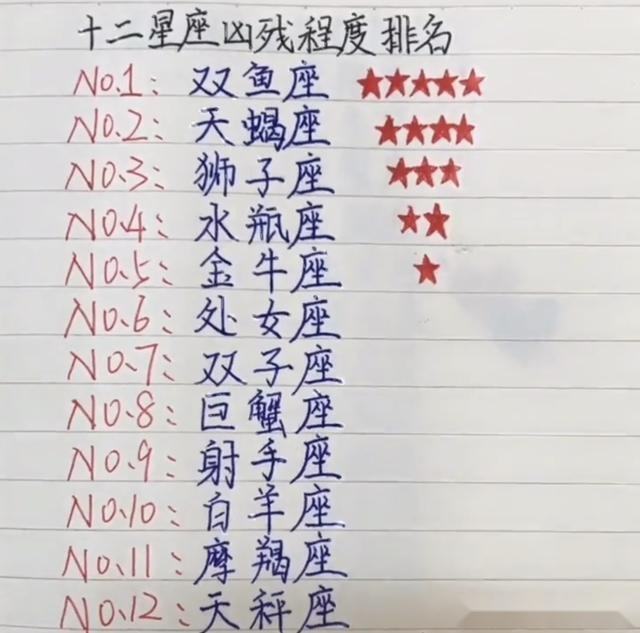 十二星座凶残程度排名
No.1: 双鱼座 ★★★★★
No.2: 天蝎座 ★★★★
No.3: 狮子座 ★★★
No.4: 水瓶座 ★★
No.5: 金牛座 ★
No.6: 处女座
No.7: 双子座
No.8: 巨蟹座
No.9: 射手座
No.10: 白羊座
No.11: 摩羯座
No.12: 天秤座